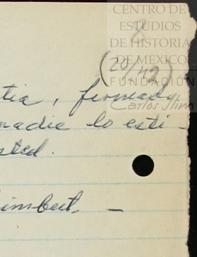 CENTRO DE
ESTUDIOS
DE HISTORIA
DE MEXICO
(20/42)
FUNDACIÓN
Carlos Slim
tia, firmeza,
nadie lo esti-
sted.
imbert, -